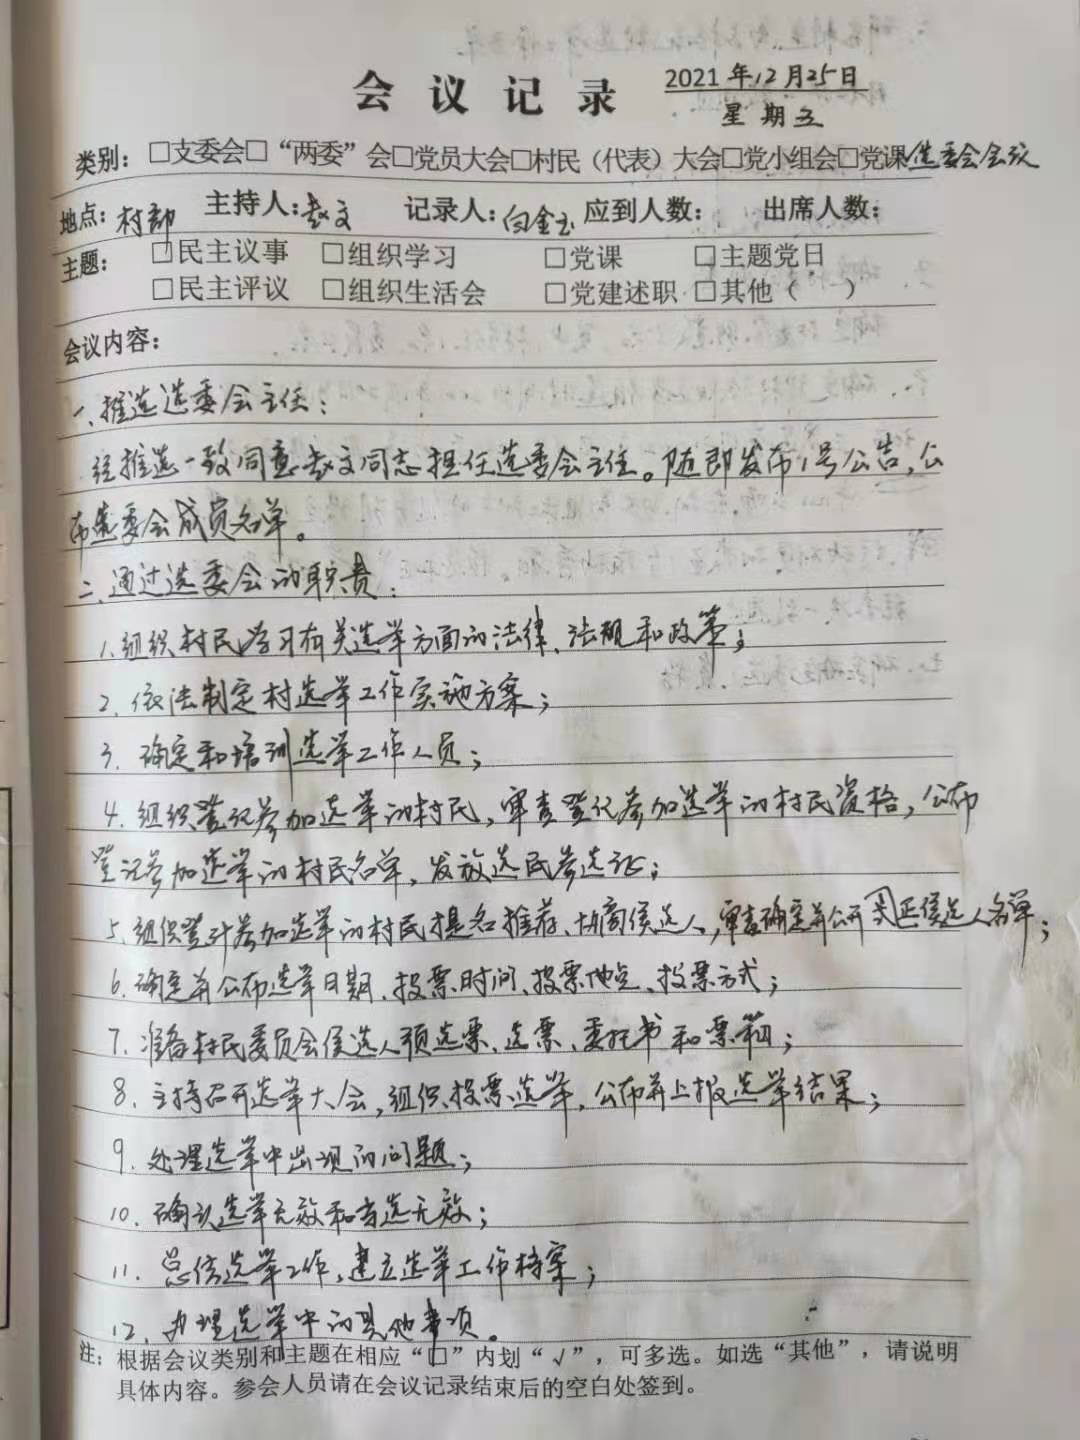 会议记录 2021年12月25日
星期五
类别：□支委会□“两委”会□党员大会□村民（代表）大会□党小组会□党课 选委会会议
地点：村部 主持人：赵文 记录人：白金玉 应到人数： 出席人数：
主题： □民主议事 □组织学习 □党课 □主题党日
□民主评议 □组织生活会 □党建述职 □其他（ ）
会议内容：
一、推选选委会主任：
经推选一致同意赵文同志担任选委会主任。随即发布1号公告，公
布选委会成员名单。
二、通过选委会的职责：
1.组织村民学习有关选举方面的法律、法规和政策；
2.依法制定村选举工作实施方案；
3.确定和培训选举工作人员；
4.组织登记参加选举的村民，审查登记参加选举的村民资格，公布
登记参加选举的村民名单，发放选民参选证；
5、组织登记参加选举的村民提名推荐、协商候选人，审查确定并公开正候选人名单；
6.确定并公布选举日期、投票时间、投票地点、投票方式；
7.准备村民委员会候选人预选票、选票、委托书和票箱；
8.主持召开选举大会，组织投票选举，公布并上报选举结果；
9.处理选举中出现的问题；
10.确认选举无效和当选无效；
11.总结选举工作，建立选举工作档案；
12、办理选举中的其他事项。
注：根据会议类别和主题在相应“□”内划“√”，可多选。如选“其他”，请说明
具体内容。参会人员请在会议记录结束后的空白处签到。